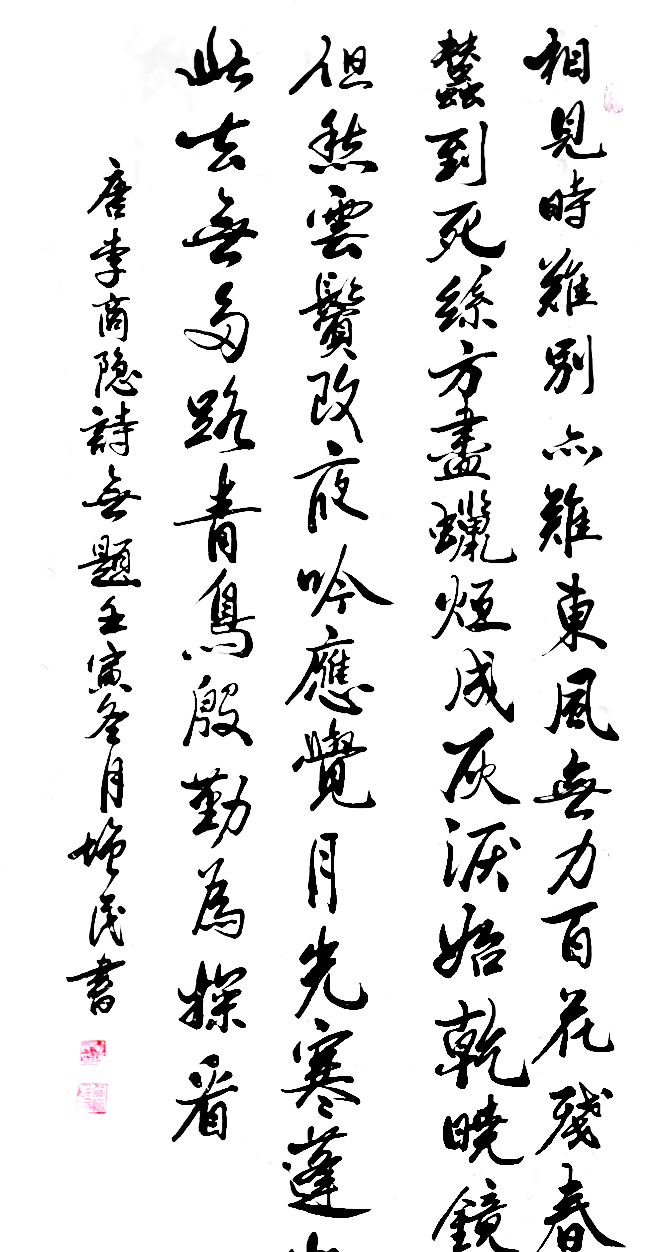 相見時難別亦難東風無力百花殘春
蠶到死絲方盡蠟炬成灰淚始乾曉鏡
但愁雲鬢改夜吟應覺月光寒蓬
此去無多路青鳥殷勤為探看
唐李商隐詩無題壬寅冬月增民書